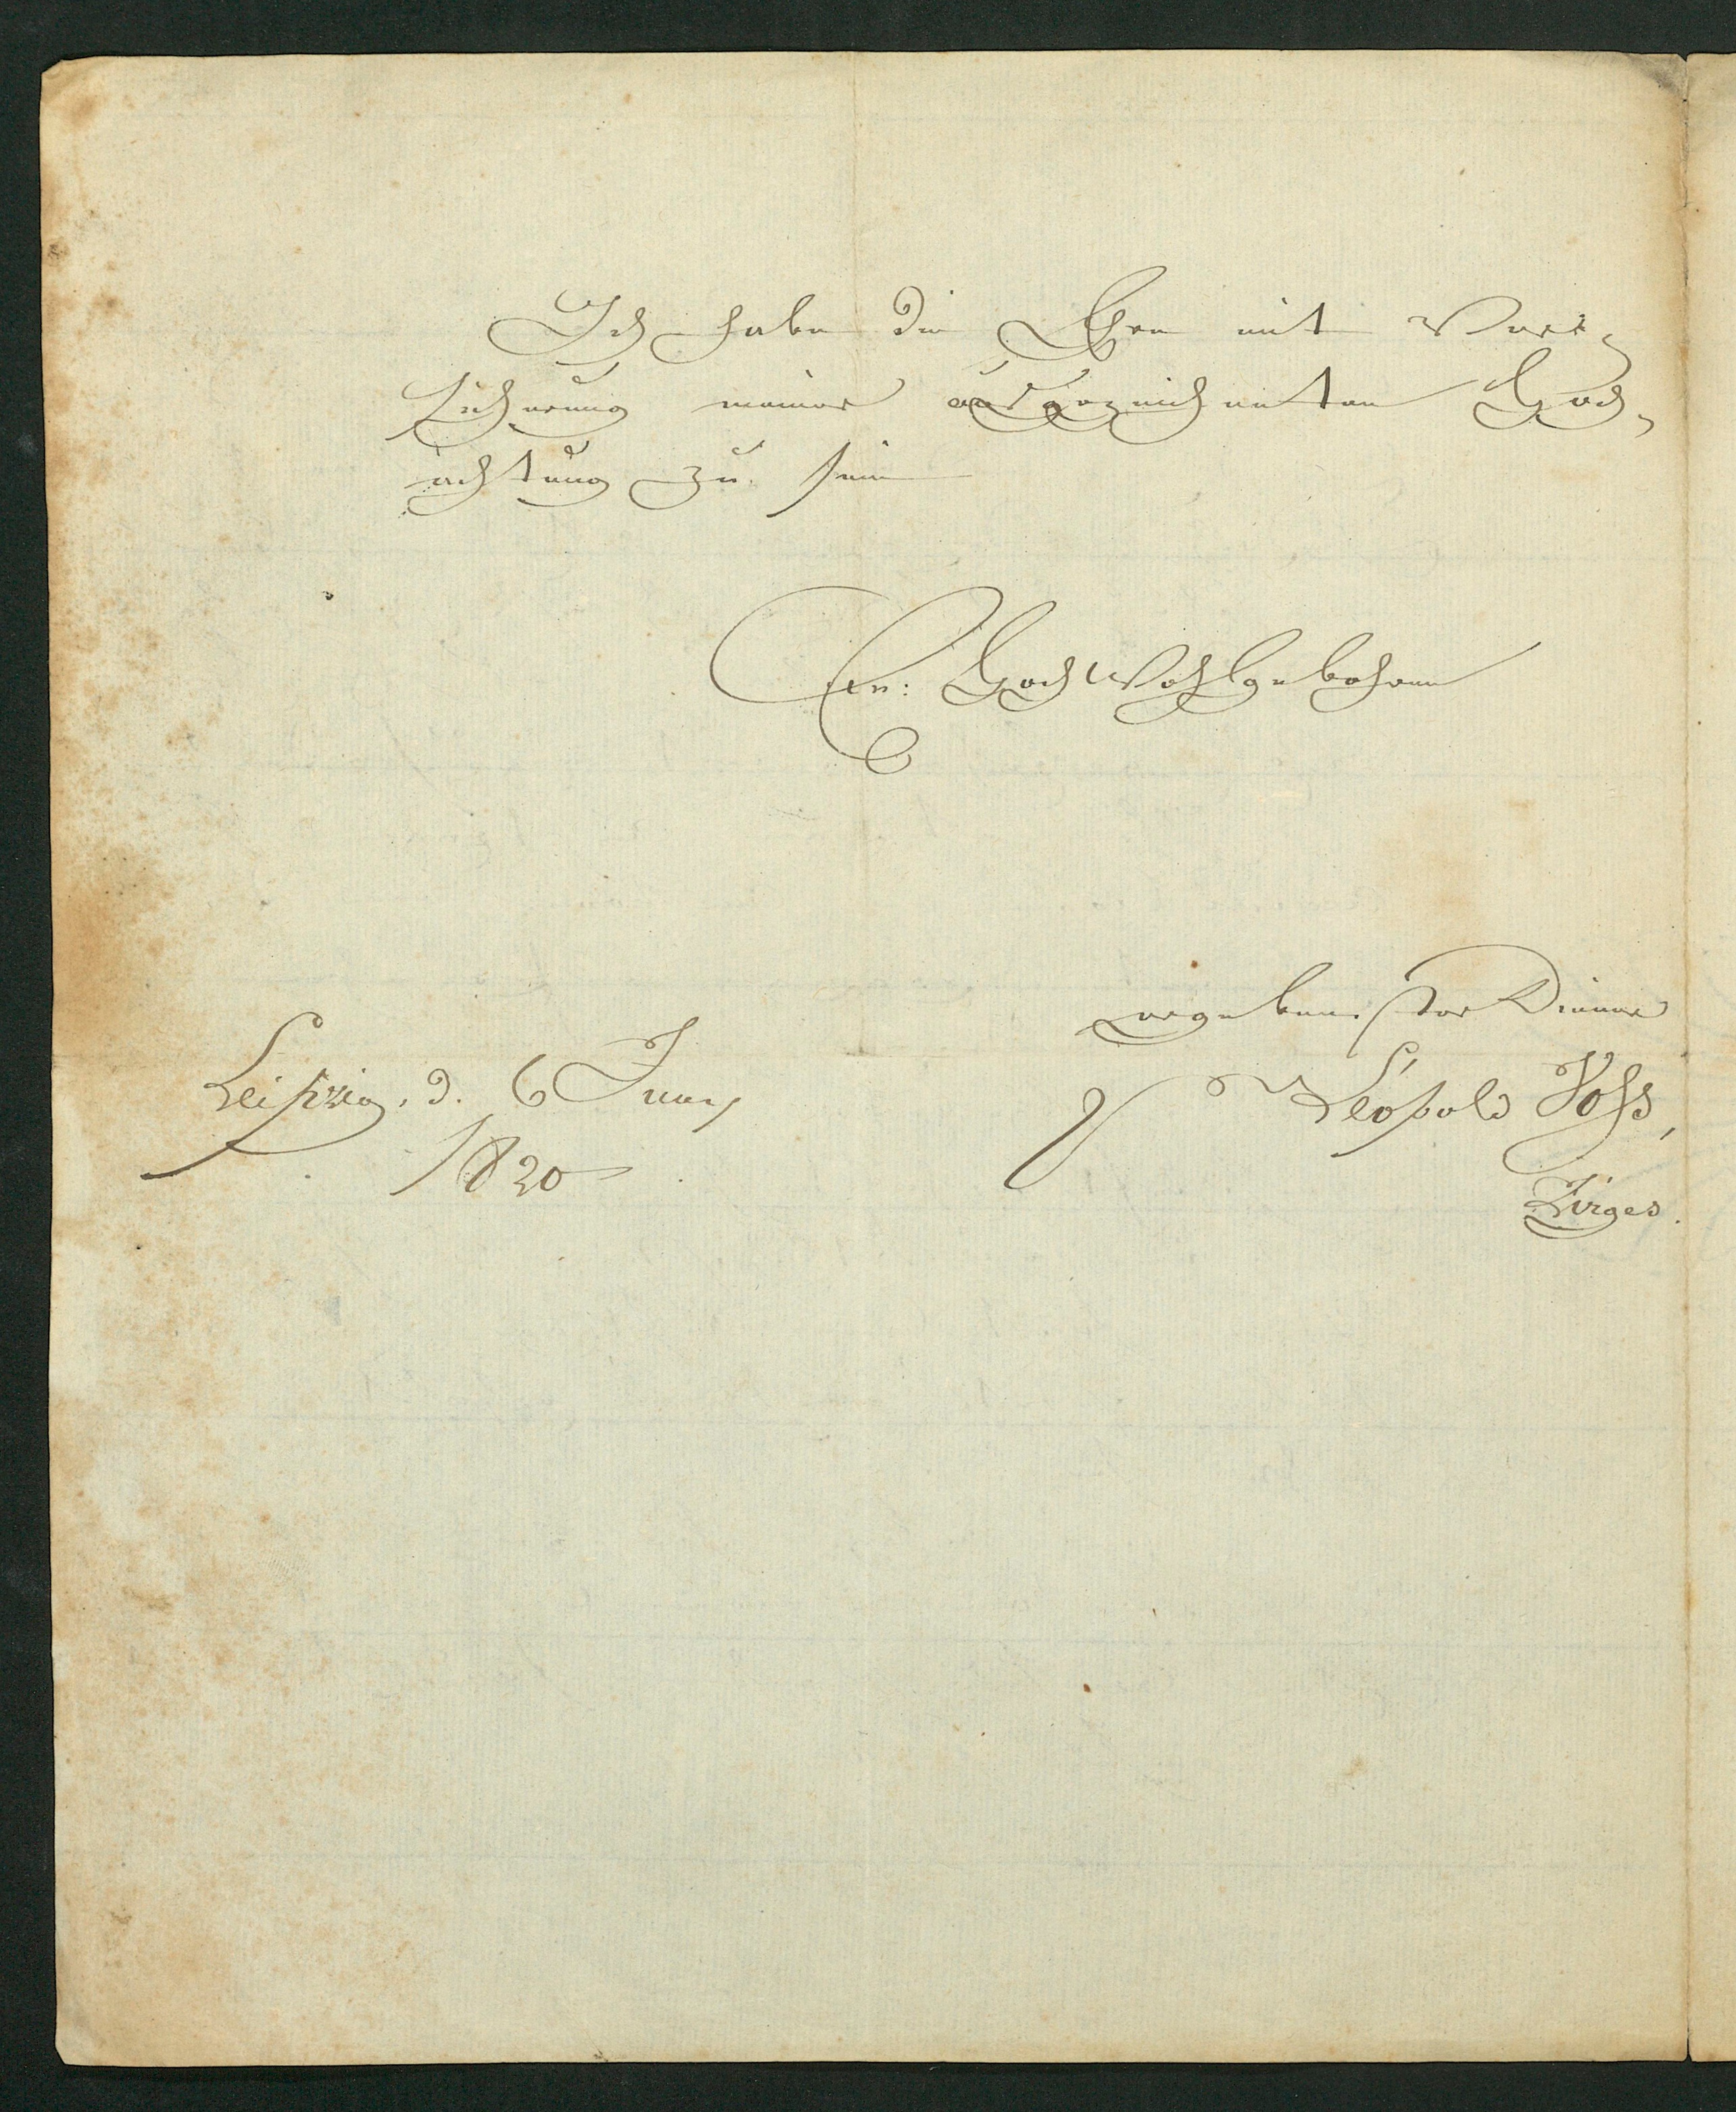 Ich habe die Ehre mit Ver-
sicherung meiner ausgezeichneten Hoch-
achtung zu sein
Ew: HochWohlgebohren
ergebenster Diener
Leopold Voſs,
Leipzig, d. 6 Juny
1820
Zirges.